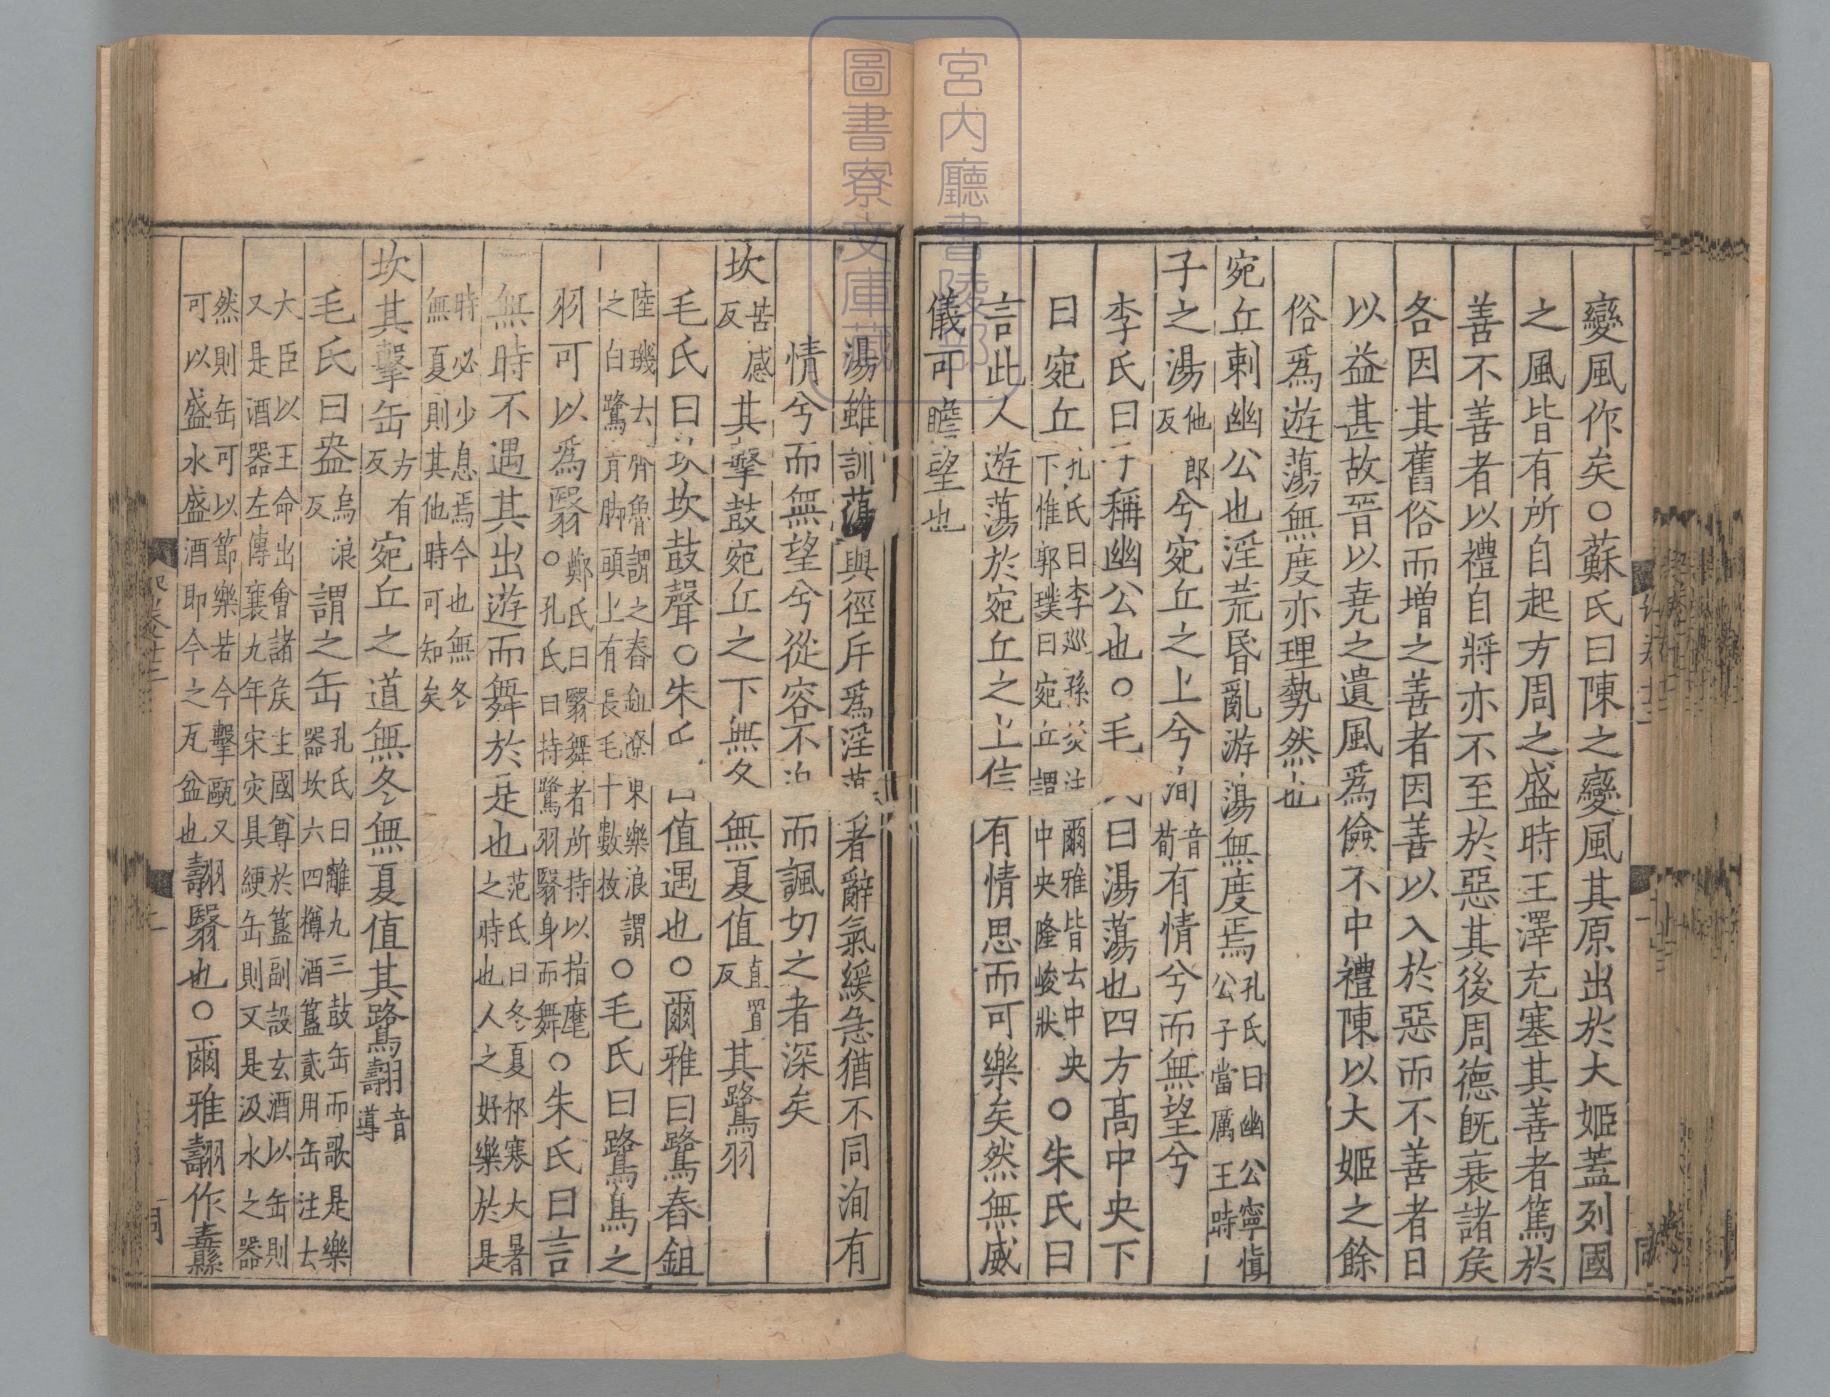 變風作矣○蘇氏曰陳之變風其原出於大姬蓋列國
之風皆有所自起方周之盛時王澤充塞其善者篤於
善不善者以禮自將亦不至於惡其後周德旣衰諸矦
各因其舊俗而增之善者因善以入於惡而不善者日
以益甚故晉以堯之遺風爲儉不中禮陳以大姬之餘
俗爲遊蕩無度亦理勢然也
宛丘刺幽公也淫荒昏亂游蕩無度焉孔氏曰幽公寧愼公子當厲王時
子之湯他郎反兮宛丘之上兮洵音荀有情兮而無望兮
李氏曰子稱幽公也○毛氏曰湯蕩也四方高中央下
曰宛丘孔氏曰李巡孫炎注爾雅皆云中央下惟郭璞曰宛丘謂中央隆峻狀○朱氏曰
言此人遊蕩於宛丘之上信有情思而可樂矣然無威
儀可瞻望也
湯雖訓蕩與徑斥爲淫蕩者辭氣緩急猶不同洵有
情兮而無望兮從容不迫而諷切之者深矣
坎苦感反其擊鼓宛丘之下無冬無夏值直置反其鷺羽
毛氏曰坎坎鼓聲○朱氏曰值遇也○爾雅曰鷺舂鉏
陸璣云齊魯謂之舂鉏遼東樂浪謂之白鷺靑脚頭上有長毛十數枚○毛氏曰鷺鳥之
羽可以爲翳○鄭氏曰翳舞者所持以指麾孔氏曰持鷺羽翳身而舞○朱氏曰言
無時不遇其出遊而舞於是也范氏曰冬夏祁寒大暑之時也人之好樂於是
時必少息焉今也無冬無夏則其他時可知矣
坎其擊缶方有反宛丘之道無冬無夏值其鷺翿音導
毛氏曰盎烏浪反謂之缶孔氏曰離九三鼓缶而歌是樂器坎六四樽酒簋貳用缶注云
大臣以王命出會諸矦主國尊於簋副設玄酒以缶則又是酒器左傳襄九年宋灾具綆缶則又是汲水之器
然則缶可以節樂若今擊甌又可以盛水盛酒即今之瓦盆也翿翳也○爾雅翿作纛
宮內廳書陵部
圖書寮文庫藏